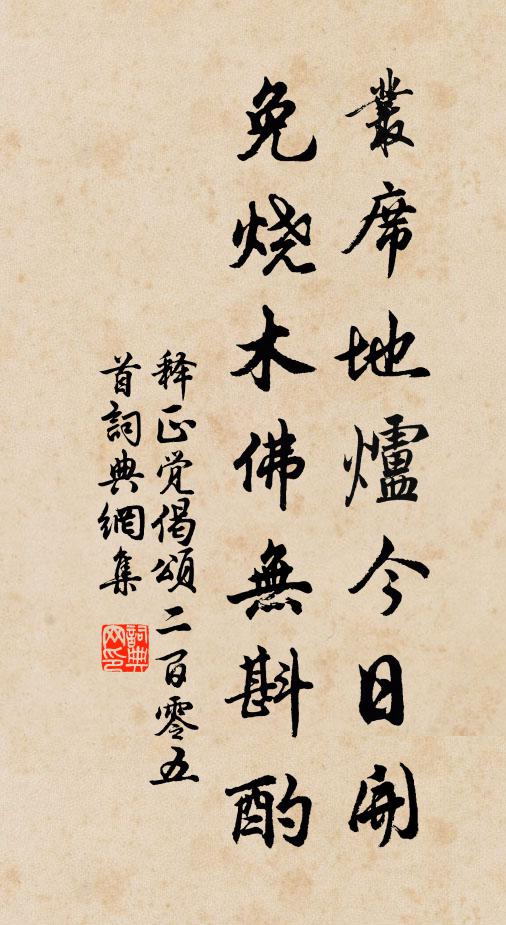 叢席地爐今日開
免烧木佛無斟酌
释正觉偈頌二百零五
首詞典網集
詞典
网印